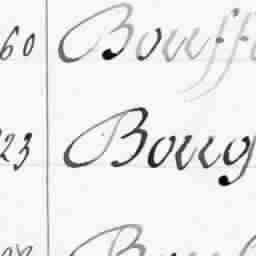 60 Bouff
23 Boug